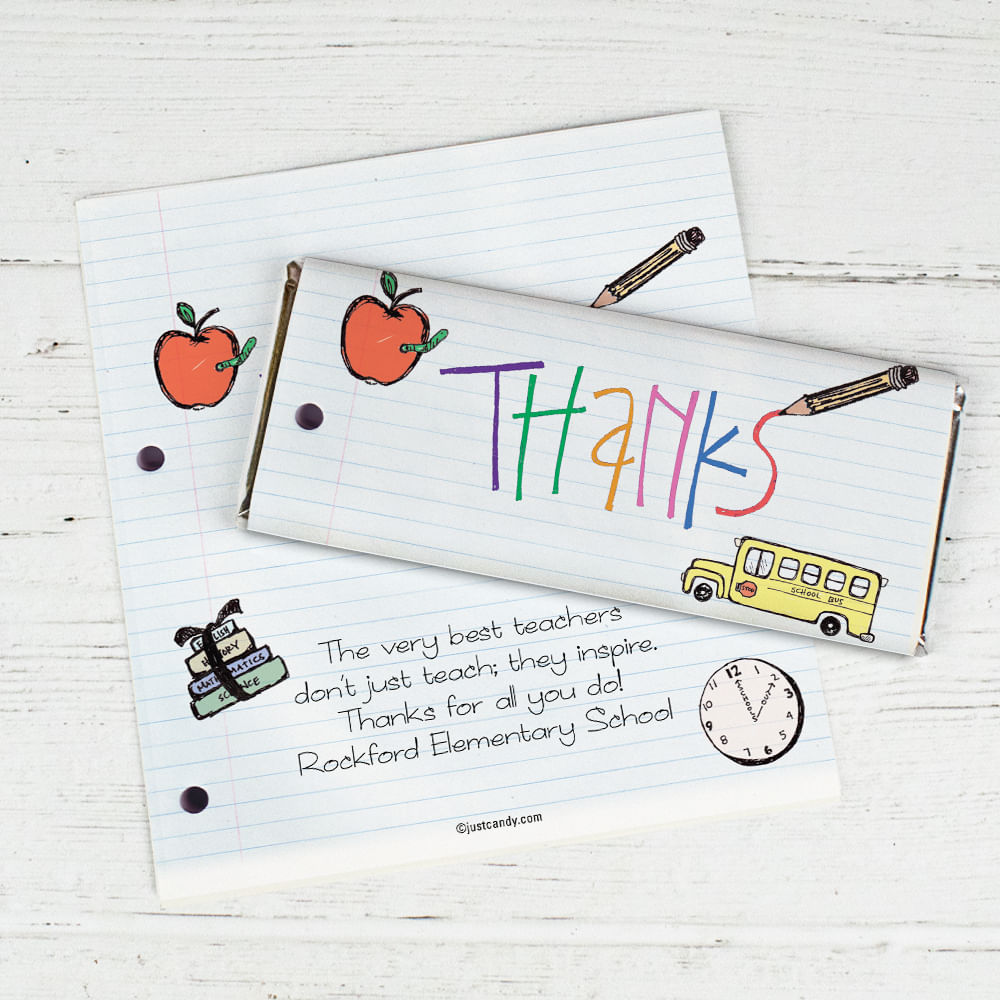 THanks
STOP
SCHOOL BUS
ENGLISH
HISTORY
MATHEMATICS
SCIENCE
The very best teachers
don't just teach; they inspire.
Thanks for all you do!
Rockford Elementary School
12
1
2
3
4
5
6
7
8
9
10
11
SCHOOLS OUT
©justcandy.com